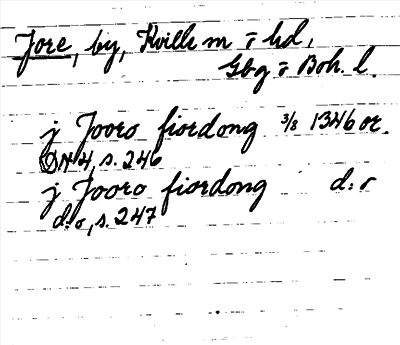 Jore, by, Kville sn o hd,
Gbg o Boh. l.
j Jooro fiordong 3/8 1346 or.
DN 4, s. 246
j Jooro fiordong d:o
d:o, s. 247